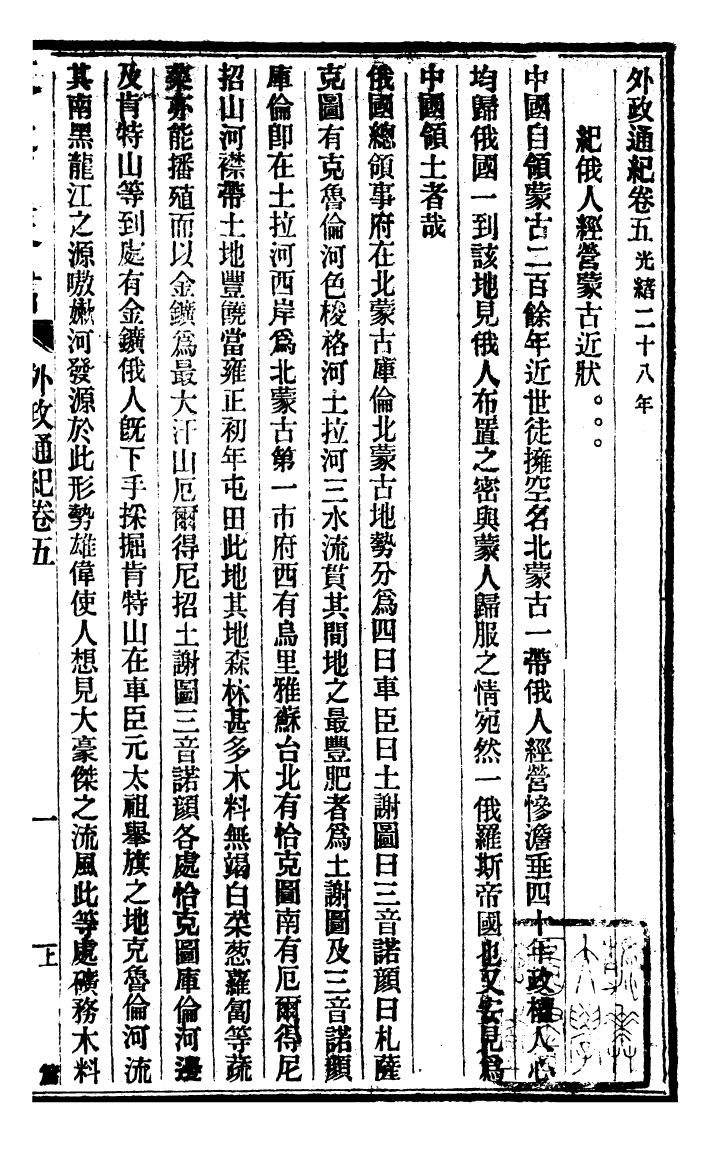 外政通紀卷五光緒二十八年
紀俄人經營蒙古近狀。。。
中國自領蒙古二百餘年近世徒擁空名北蒙古一帶俄人經營慘澹垂四十年政權人心
均歸俄國一到該地見俄人布置之密與蒙人歸服之情宛然一俄羅斯帝國也又安見爲
中國領土者哉
俄國總領事府在北蒙古庫倫北蒙古地勢分爲四曰車臣曰土謝圖曰三音諾顏曰札薩
克圖有克魯倫河色梭格河土拉河三水流貫其間地之最豐肥者爲土謝圖及三音諾顏
庫倫卽在土拉河西岸爲北蒙古第一市府西有烏里雅蘇台北有恰克圖南有厄爾得尼
招山河襟帶土地豐饒當雍正初年屯田此地其地森林甚多木料無竭白菜葱蘿蔔等蔬
菜亦能播殖而以金鑛爲最大汗山厄爾得尼招土謝圖三音諾顏各處恰克圖庫倫河邊
及肯特山等到處有金鑛俄人旣下手採掘肯特山在車臣元太祖舉旗之地克魯倫河流
其南黑龍江之源嗷嫩河發源於此形勢雄偉使人想見大豪傑之流風此等處礦務木料
外政通紀卷五
一
上